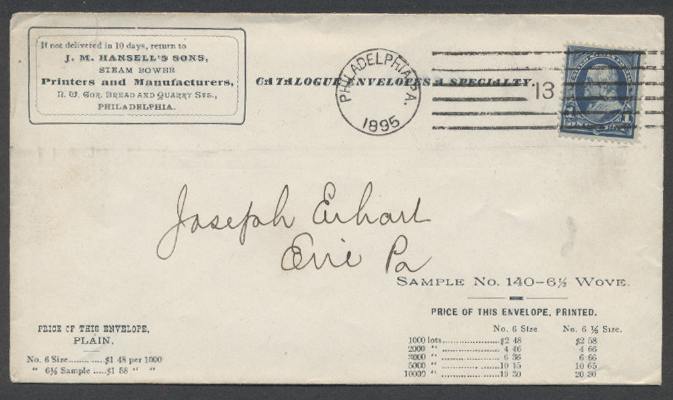 If not delivered in 10 days, return to
J. M. HANSELL'S SONS,
STEAM POWER
Printers and Manufacturers,
N. W. Cor. Bread and Quarry Sts.,
PHILADELPHIA.
CATALOGUE ENVELOPES A SPECIALTY.
PHILADELPHIA, PA.
1895
13
Joseph Erhart
Erie Pa
SAMPLE No. 140-6½ WOVE.
PRICE OF THIS ENVELOPE, PRINTED.
No. 6 Size No. 6 ½ Size.
1000 lots $2 48 $2 58
2000 " 4 46 4 66
3000 " 6 36 6 66
5000 " 10 15 10 65
10000 " 19 30 20 30
PRICE OF THIS ENVELOPE,
PLAIN.
No. 6 Size $1 48 per 1000
" 6½ Sample $1 58 " "